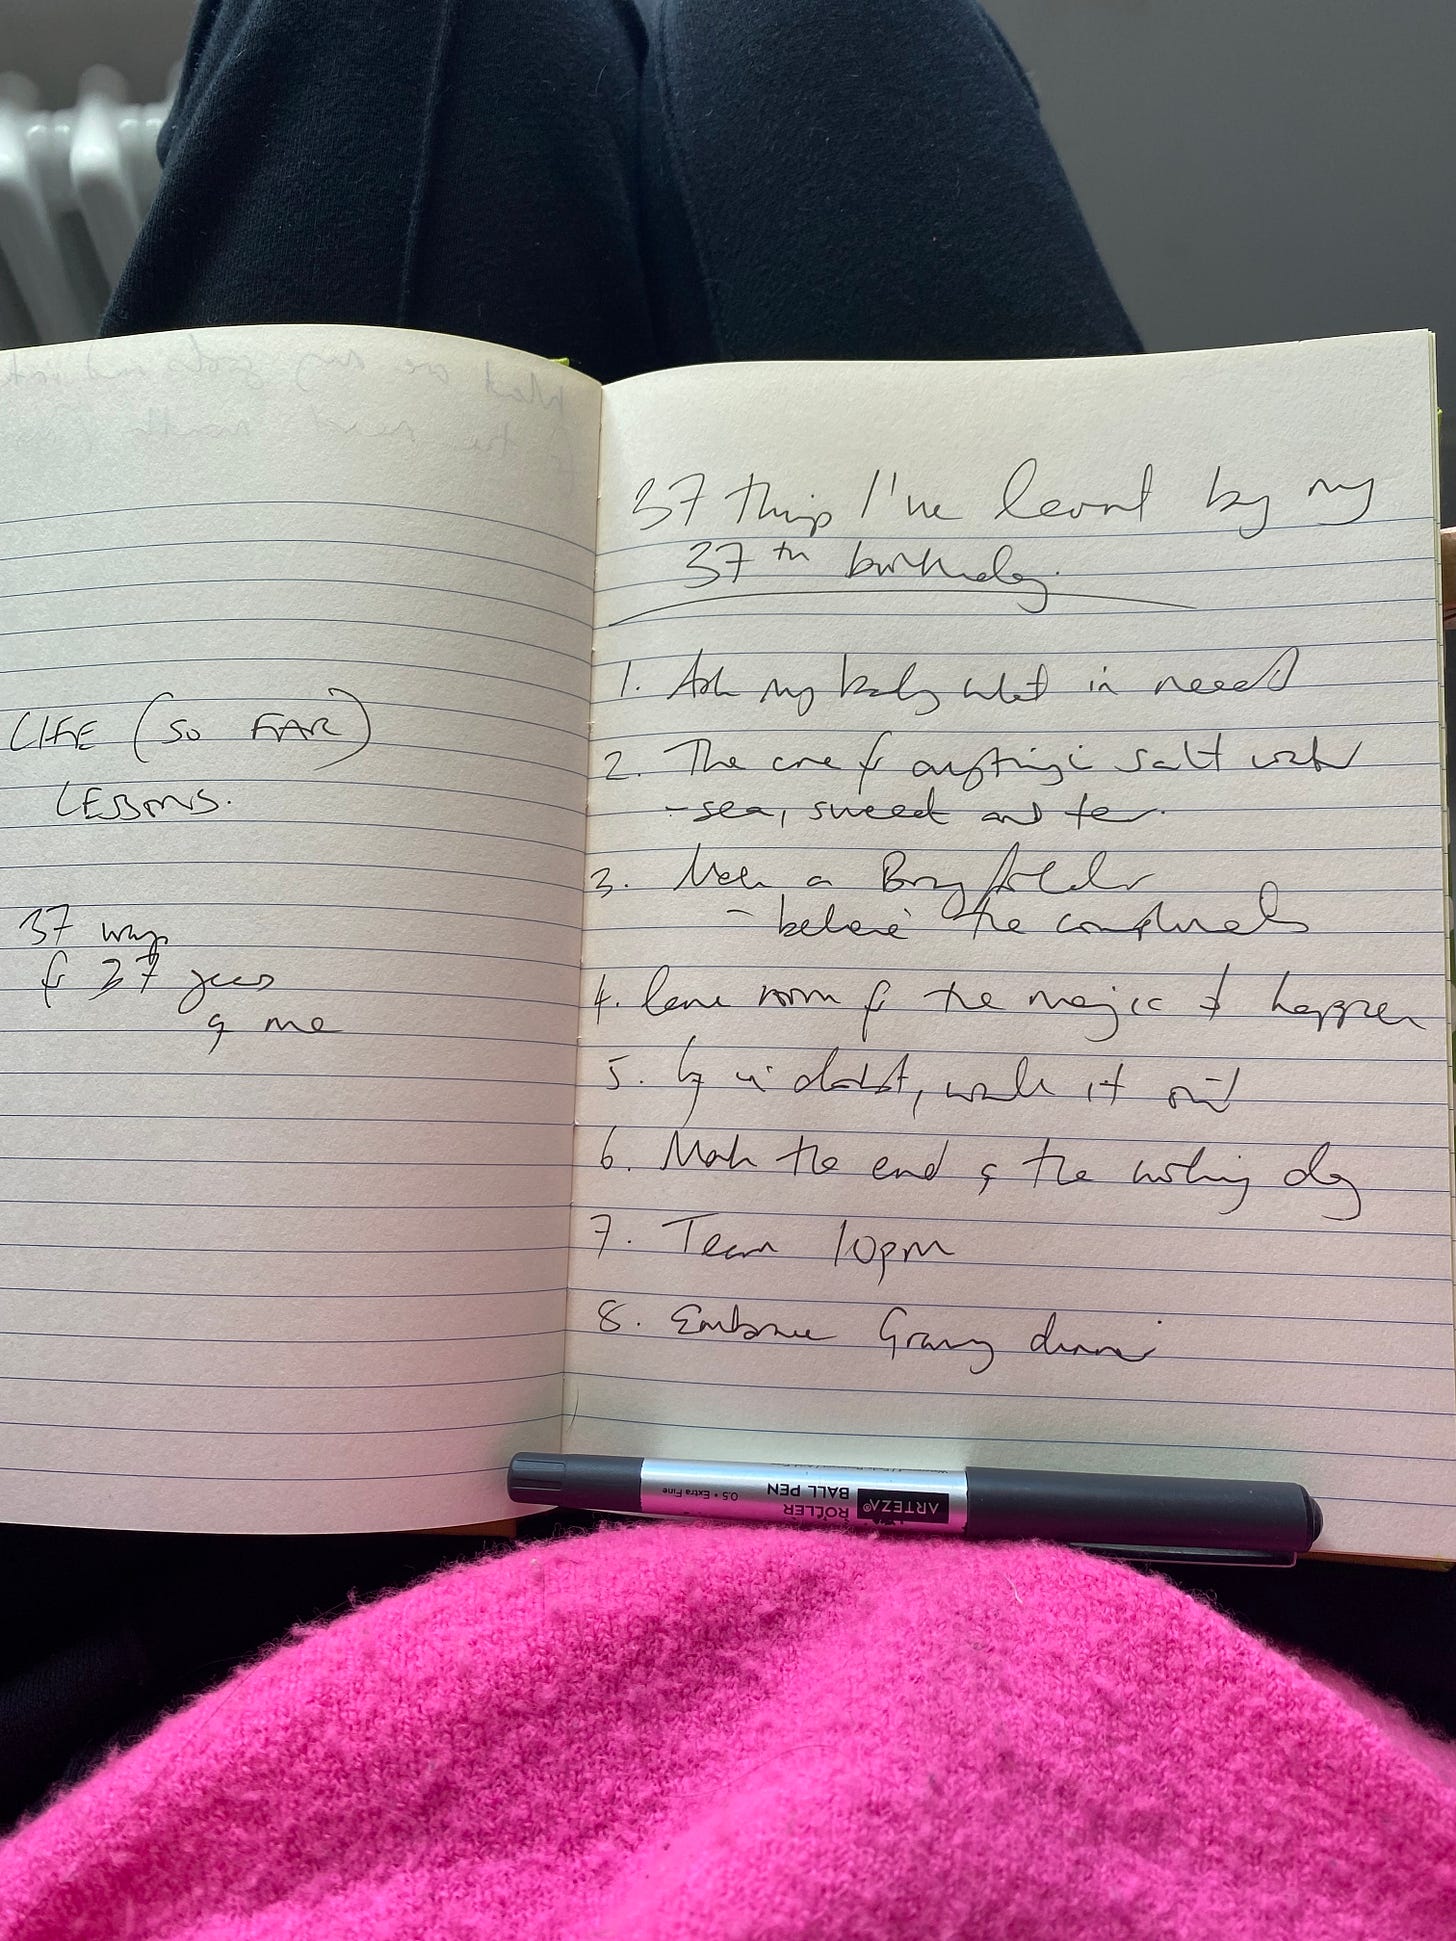 LIFE (SO FAR)
LESSONS.
37 ways
for 37 years
of me
37 things I've learnt by my
37th birthday.
1. Ask my body what it needs
2. The cure for anything is salt water
- sea, sweat and tears.
3. Make a Brag folder
- believe the compliments
4. leave room for the magic to happen
5. If in doubt, walk it out
6. Mark the end of the working day
7. Team 10pm
8. Embrace Granny dinner
ARTEZA®
ROLLER
BALL PEN
0.5 • Extra Fine